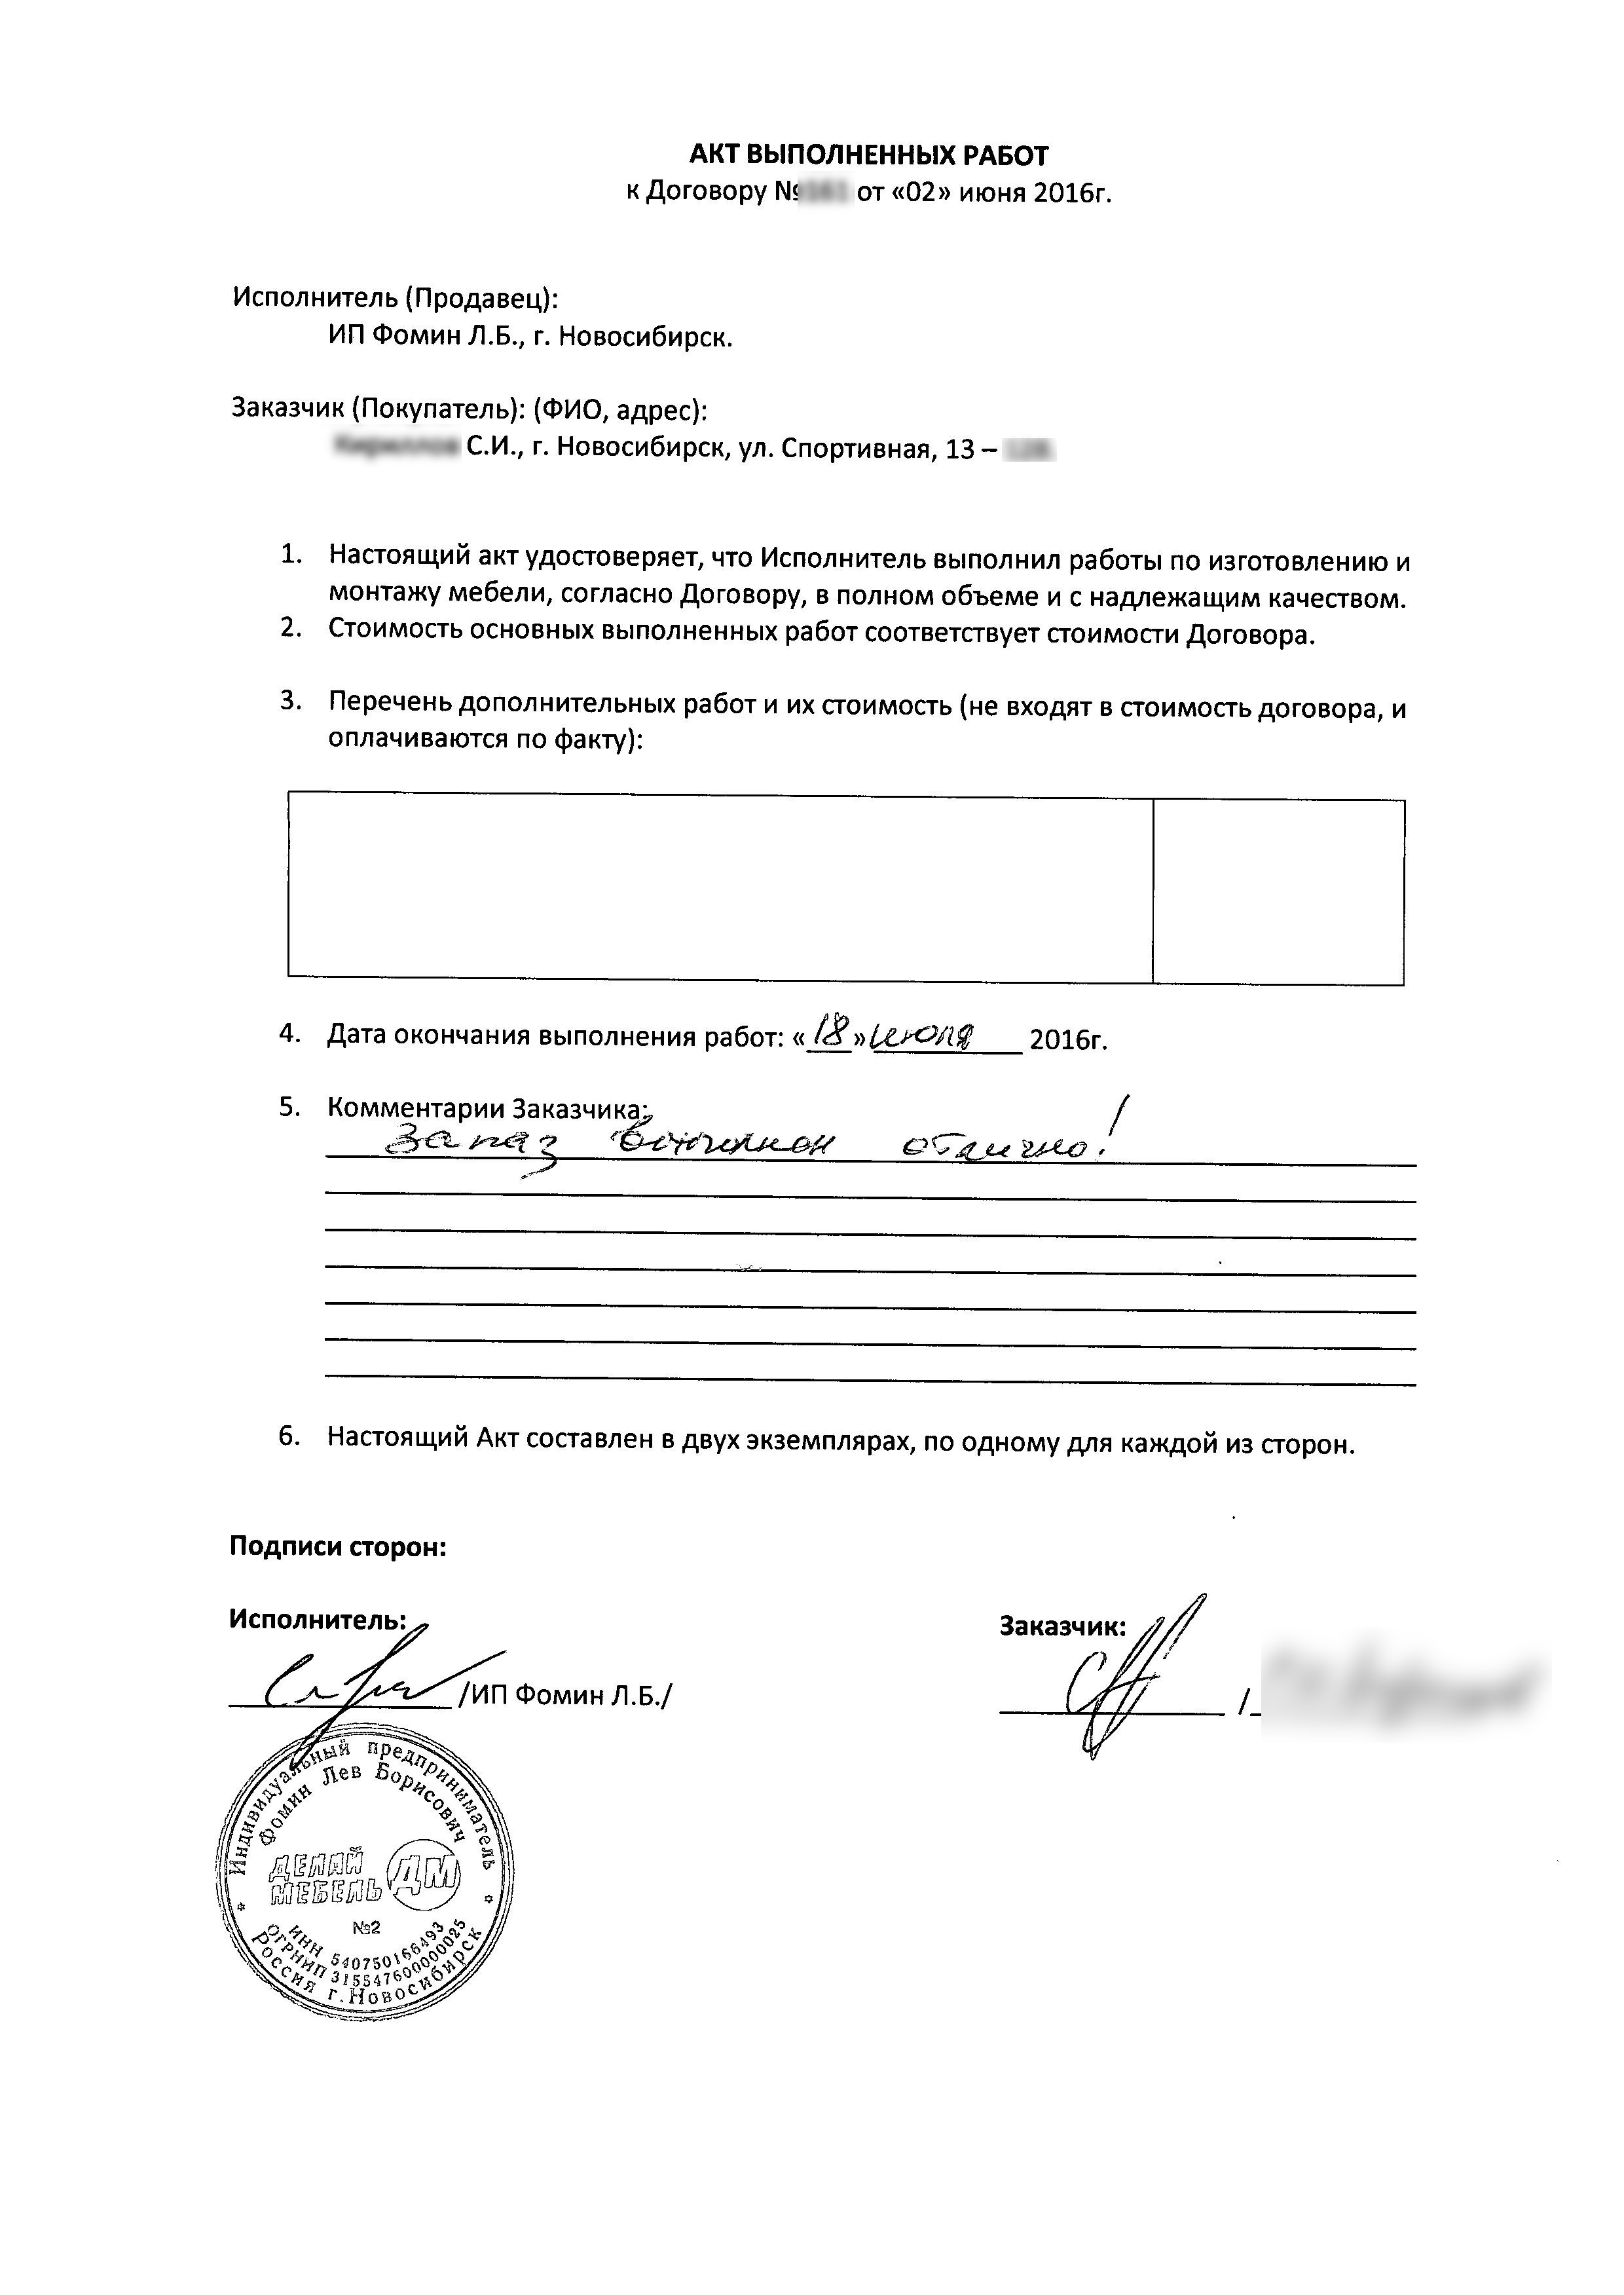 АКТ ВЫПОЛНЕННЫХ РАБОТ
к Договору № от «02» июня 2016г.
Исполнитель (Продавец):
ИП Фомин Л.Б., г. Новосибирск.
Заказчик (Покупатель): (ФИО, адрес):
С.И., г. Новосибирск, ул. Спортивная, 13 –
1. Настоящий акт удостоверяет, что Исполнитель выполнил работы по изготовлению и
монтажу мебели, согласно Договору, в полном объеме и с надлежащим качеством.
2. Стоимость основных выполненных работ соответствует стоимости Договора.
3. Перечень дополнительных работ и их стоимость (не входят в стоимость договора, и
оплачиваются по факту):
4. Дата окончания выполнения работ: «18» июля 2016г.
5. Комментарии Заказчика:
Заказ выполнен отлично!
6. Настоящий Акт составлен в двух экземплярах, по одному для каждой из сторон.
Подписи сторон:
Исполнитель: Заказчик:
/ИП Фомин Л.Б./ /
Индивидуальный предприниматель
Фомин Лев Борисович
ДЕЛАЙ
МЕБЕЛЬ ДМ
№2
ИНН 540750166493
ОГРНИП 315547600000025
Россия г.Новосибирск